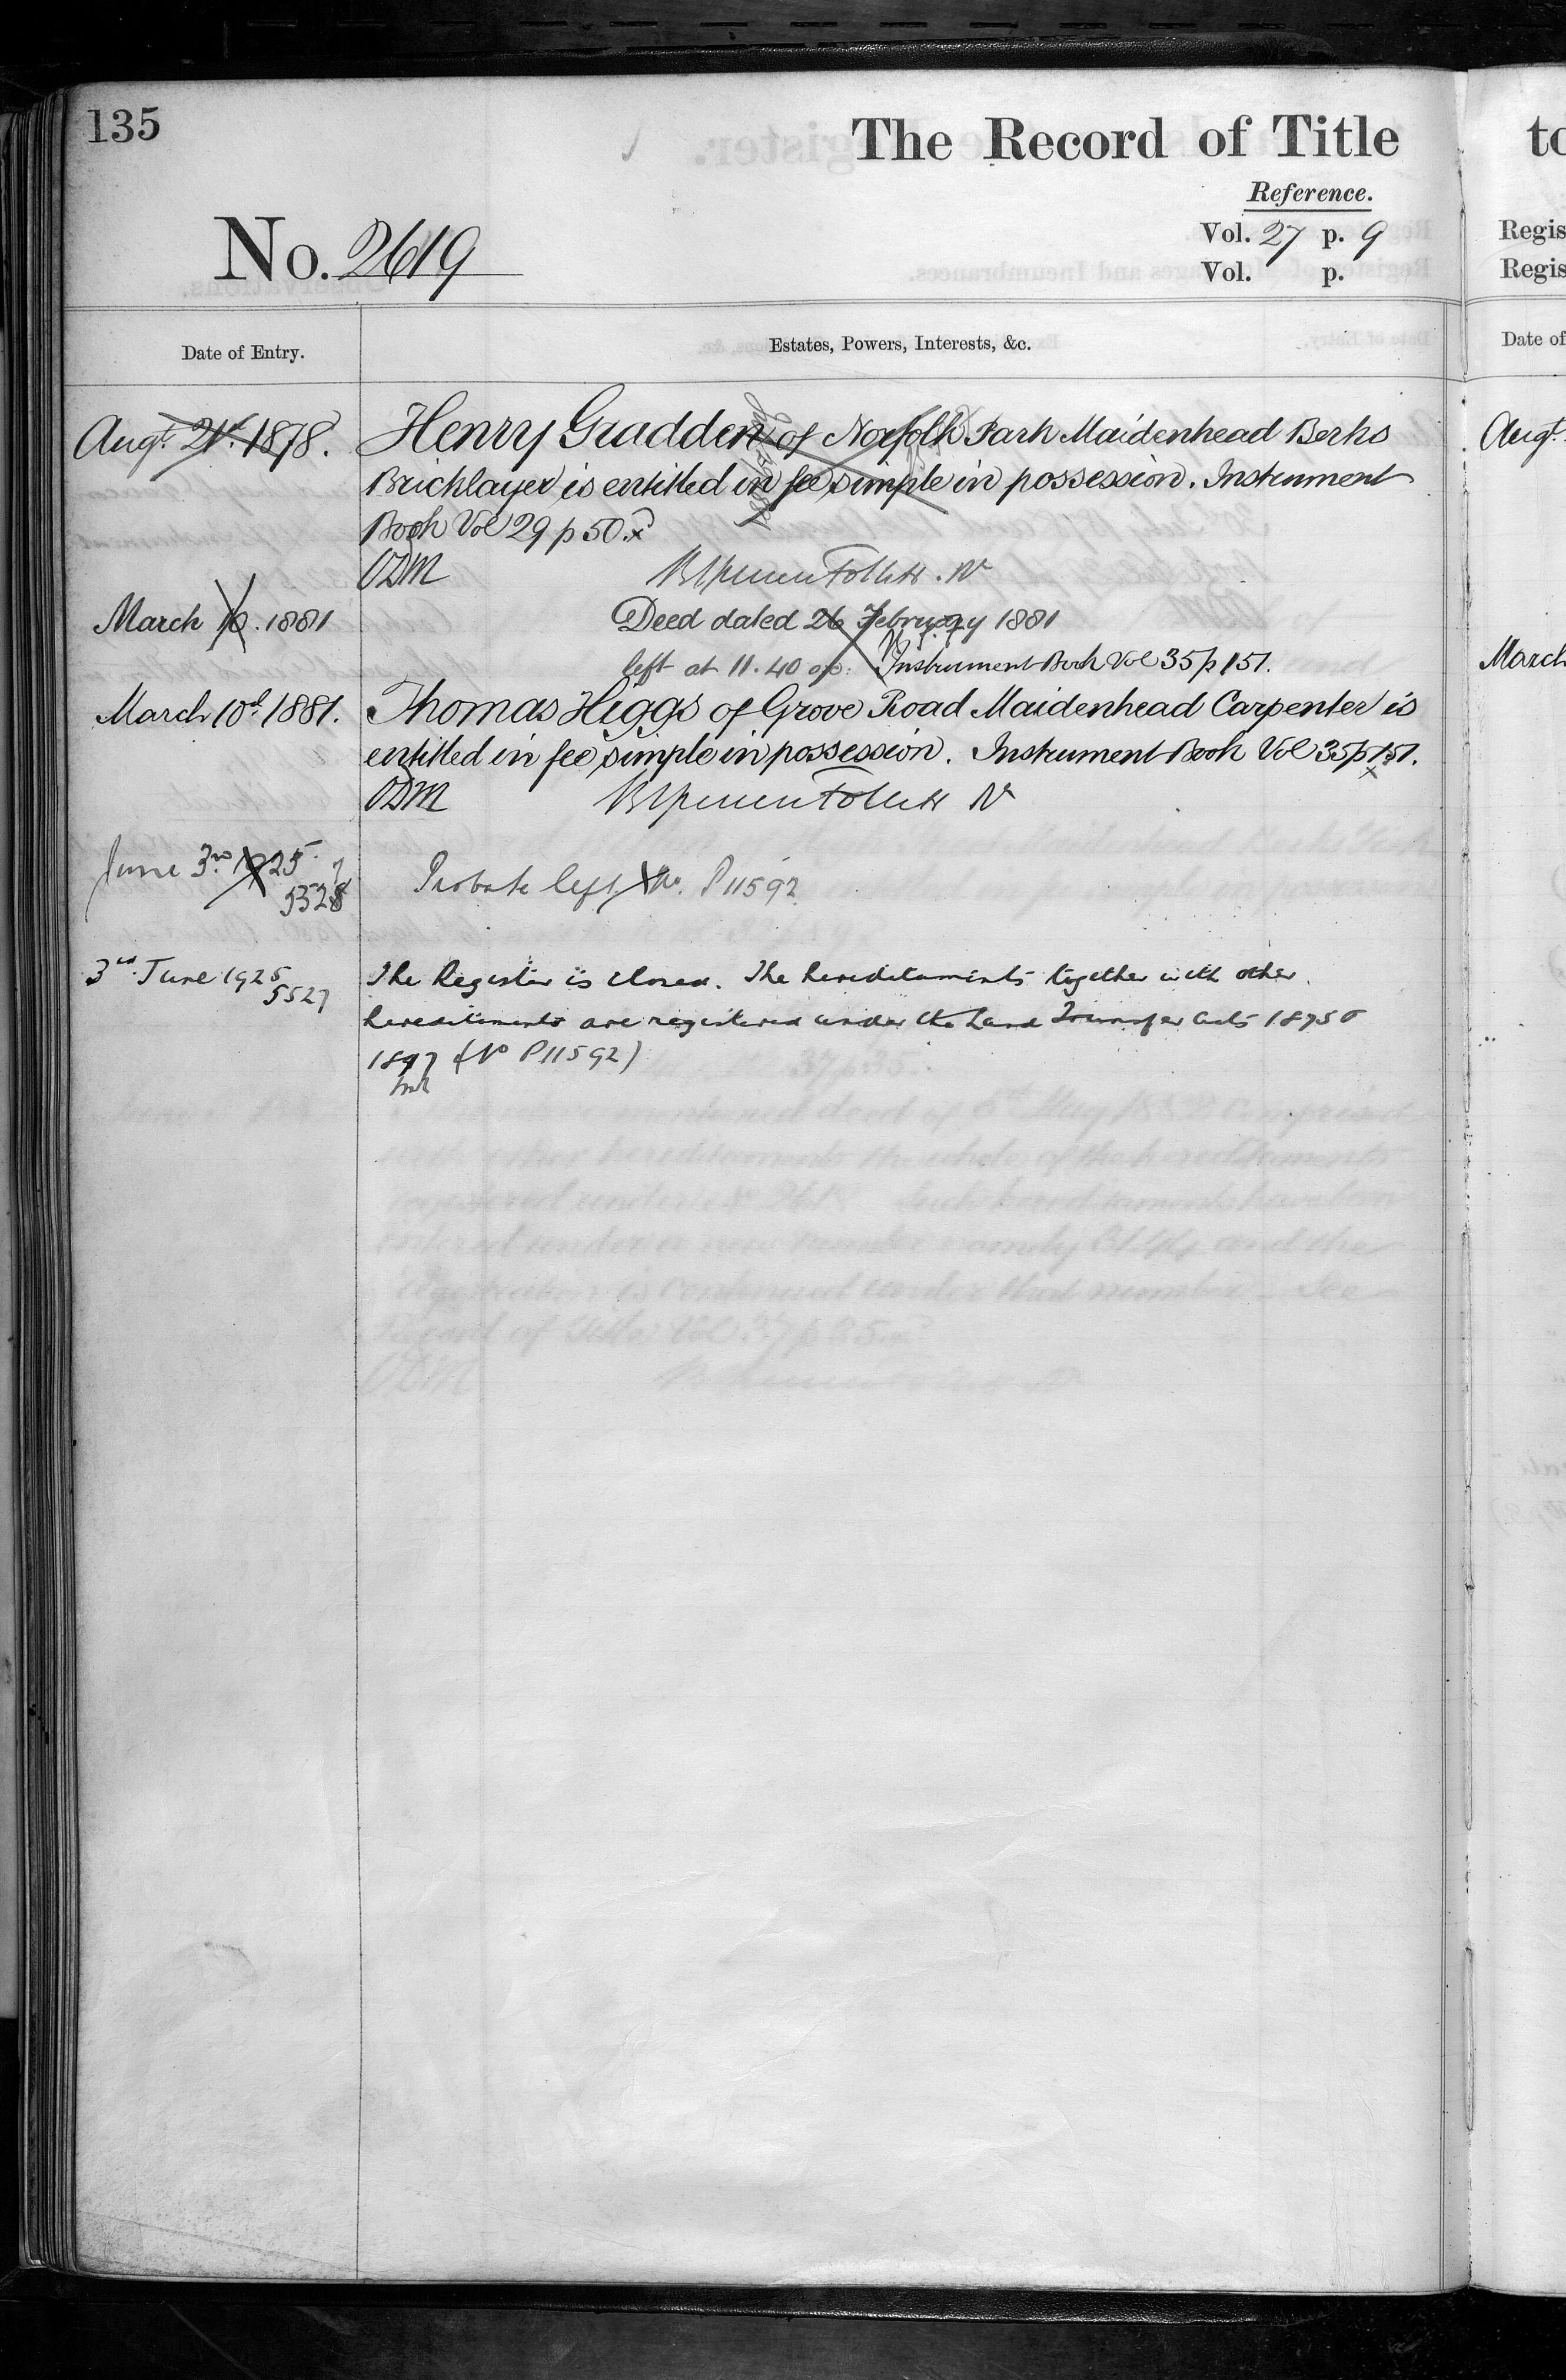 135
The Record of Title
Reference.
No. 2619
Vol. 27 p. 9
Vol. p.
Date of Entry.
Estates, Powers, Interests, &c.
Augt. 21st. 1878.
Henry Gradden of Norfolk Park Maidenhead Berks
Bricklayer is entitled in fee simple in possession. Instrument
Book Vol 29 p 50.
ODM
March 10. 1881
Deed dated 26 February 1881
left at 11.40 Instrument Book Vol 35 p 151.
March 10th. 1881.
Thomas Higgs of Grove Road Maidenhead Carpenter is
entitled in fee simple in possession. Instrument Book Vol 35 p 151.
ODM
June 3rd. 1925
Probate left No. P11592
3rd. June 1925
5527
The Register is closed. The hereditaments together with other
hereditaments are registered under the Land Transfer Acts 1875 &
1897 (No P11592)
to
Regis
Regis
Date of
Augt.
March